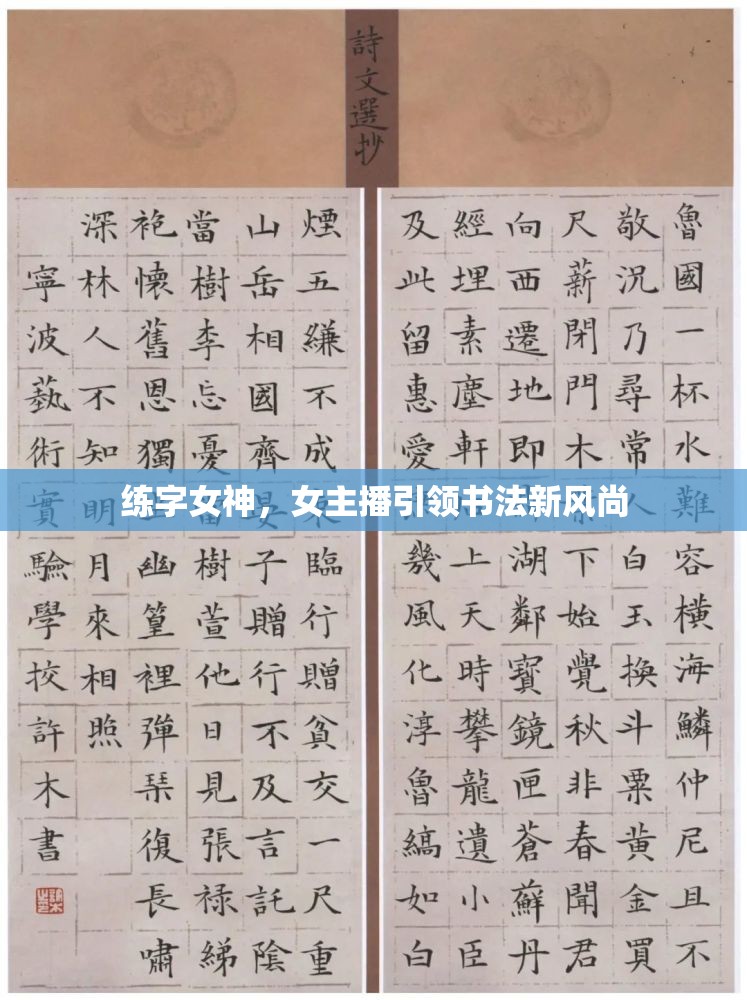 詩文選抄
魯國一杯水難容橫海鱗仲尼且不
敬況乃尋常人白玉換斗粟黃金買
尺薪閉門木下始覺秋非春聞君
向西遷地即湖鄰寶鏡匣蒼蘚丹
經埋素塵軒上天時攀龍遺小臣
及此留惠愛幾風化淳魯縞如白
煙五縑不成束臨行贈貧交一尺重
山岳相國齊晏子贈行不及言託陰
當樹李忘憂當樹萱他日見張祿綈
袍懷舊恩獨幽篁裡彈琴復長嘯
深林人不知明月來相照
寧波藝術實驗學校許木書
练字女神，女主播引领书法新风尚